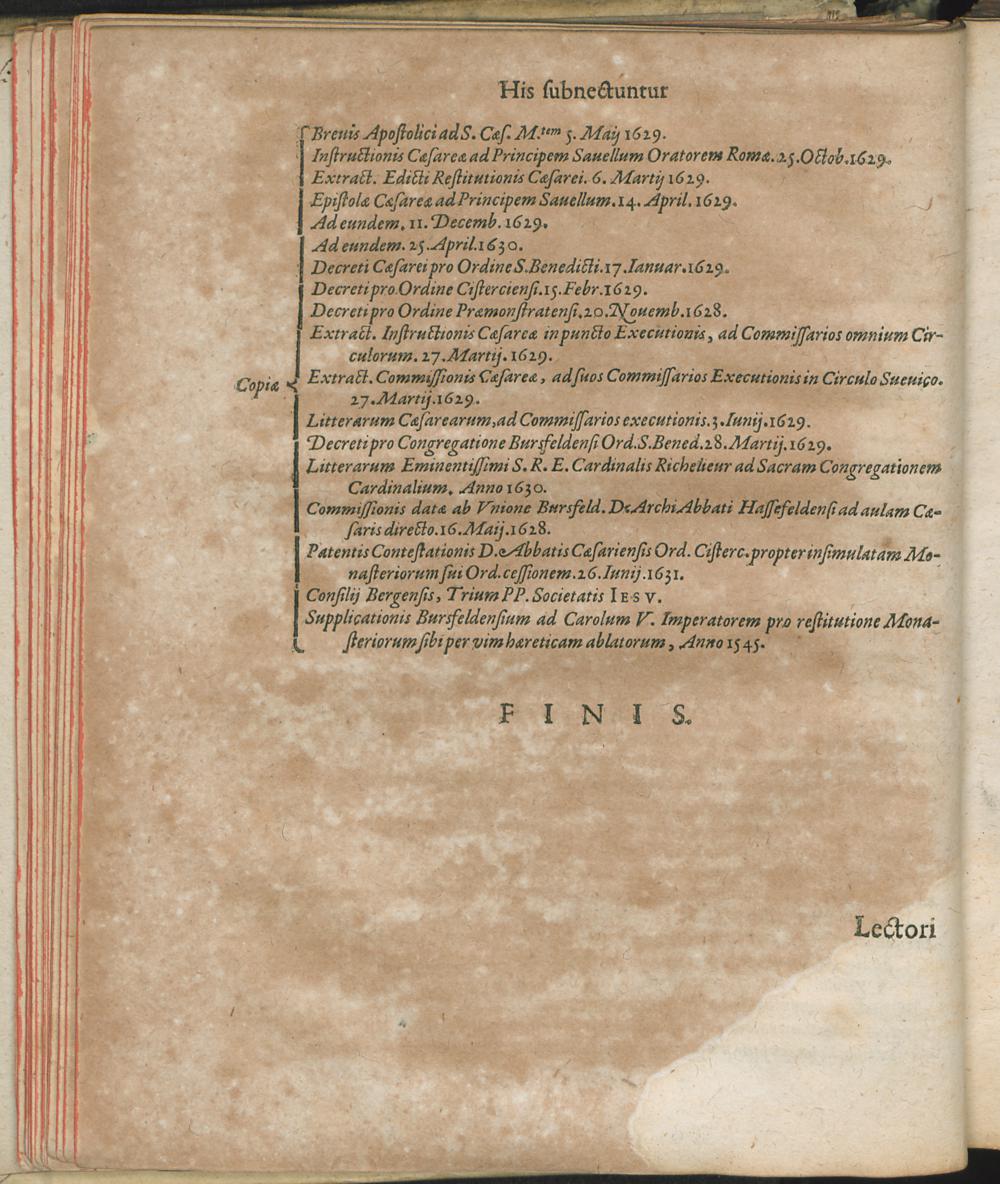 His ſubnectuntur
Breuis Apoſtolici ad S. Cæſ. M.tem 5. Maij 1629.
Inſtructionis Cæſareæ ad Principem Sauellum Oratorem Romæ. 25. Octob. 1629.
Extract. Edicti Reſtitutionis Cæſarei. 6. Martij 1629.
Epiſtolæ Cæſareæ ad Principem Sauellum. 14. April. 1629.
Ad eundem. 11. Decemb. 1629.
Ad eundem. 25. April. 1630.
Decreti Cæſarei pro Ordine S. Benedicti. 17. Ianuar. 1629.
Decreti pro Ordine Ciſtercienſi. 15. Febr. 1629.
Decreti pro Ordine Præmonſtratenſi. 20. Nouemb. 1628.
Extract. Inſtructionis Cæſareæ in puncto Executionis, ad Commiſſarios omnium Cir-
culorum. 27. Martij. 1629.
Copiæ
Extract. Commiſſionis Cæſareæ, ad ſuos Commiſſarios Executionis in Circulo Sueuico.
27. Martij. 1629.
Litterarum Cæſarearum, ad Commiſſarios executionis. 3. Iunij. 1629.
Decreti pro Congregatione Bursfeldenſi Ord. S. Bened. 28. Martij. 1629.
Litterarum Eminentiſſimi S. R. E. Cardinalis Richelieur ad Sacram Congregationem
Cardinalium. Anno 1630.
Commiſſionis datæ ab Vnione Bursfeld. D. Archi Abbati Haſſefeldenſi ad aulam Cæ-
ſaris directo. 16. Maij. 1628.
Patentis Conteſtationis D. Abbatis Cæſarienſis Ord. Ciſterc. propter inſimulatam Mo-
naſteriorum ſui Ord. ceſſionem. 26. Iunij. 1631.
Conſilij Bergenſis, Trium PP. Societatis IESV.
Supplicationis Bursfeldenſium ad Carolum V. Imperatorem pro reſtitutione Mona-
ſteriorum ſibi per vim hæreticam ablatorum, Anno 1545.
FINIS.
Lectori